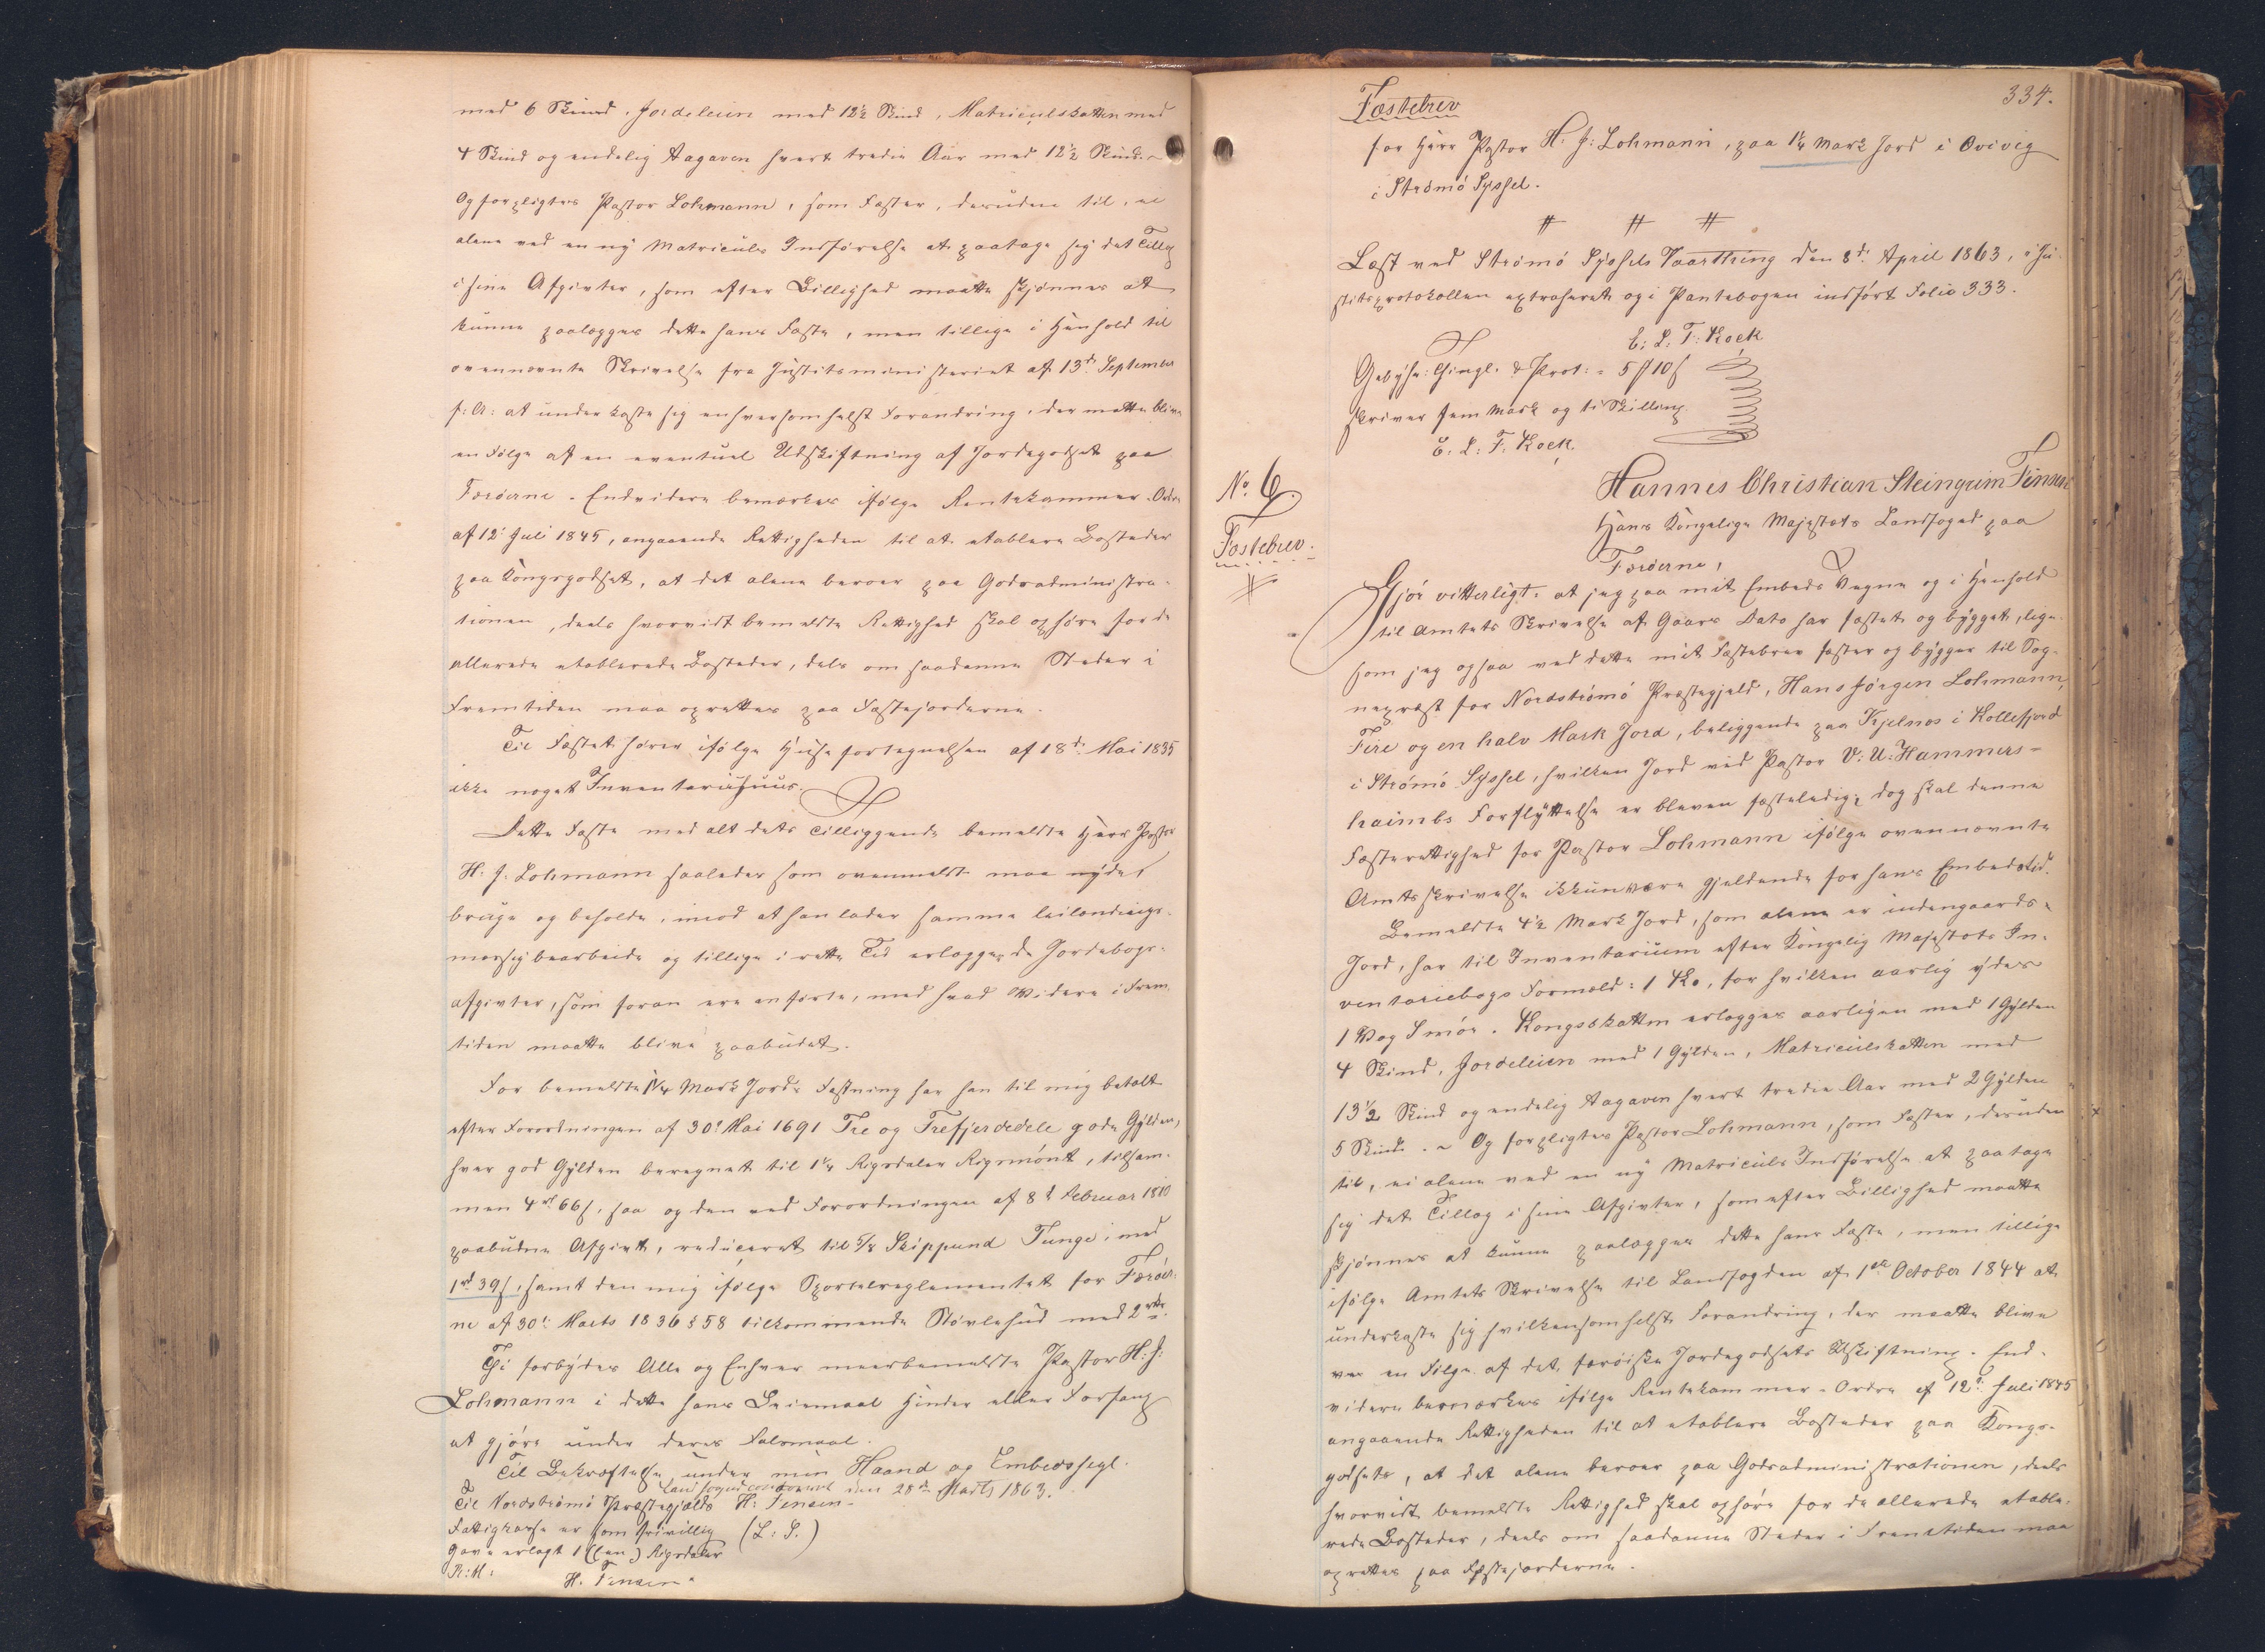 med 6 Skind, Jordeleien med 12½ Skind, Matriculskatten med
4 Skind og endelig Aagaven hvert tredie Aar med 12½ Skind.~
Og forpligtes Pastor Lohmann, som Fæster, desuden til, ei
alene ved en ny Matriculs Indførelse at paatage sig det Tillæg
i sine Afgivter, som efter Billighed maatte skjønnes at
kunne paalægges dette hans Fæste, men tillige i Henhold til
ovennævnte Skrivelse fra Justitsministeriet af 13de September
f: A: at underkaste sig enhversomhelst Forandring, der maatte blive
en Følge af en eventuel Udskiftning af Jordegodset paa
Færøerne. Endvidere bemærkes ifølge Rentekammer-Ordre
af 12' Juli 1845, angaaende Rettigheden til at etablere Bosteder
paa Kongsgodset, at det alene beroer paa Godsadministra-
tionen, deels hvorvidt bemeldte Rettighed skal ophøre for de
allerede etablerede Bosteder, dels om saadanne Steder i
Fremtiden maa oprettes paa Fæstejorderne.
Til Fæstet hører ifølge Huusfortegnelsen af 18de Mai 1835
ikke noget Inventariihuus.
Dette Fæste med alt dets Tilliggende bemeldte Herr Pastor
H. J. Lohmann saaledes som ovenmeldt maa nyde,
bruge og beholde, imod at han lader samme leilændings-
mæssig bearbeide og tillige i rette Tid erlægger de Jordebogs-
afgivter, som foran ere anførte, med hvad Videre i Frem-
tiden maatte blive paabudet.
For bemeldte 1¼ Mark Jords Fæstning har han til mig betalt
efter Forordningen af 30' Mai 1691 Tre og Trefjerdedele gode Gylden,
hver god Gylden beregnet til 1¼ Rigsdaler Rigsmønt, tilsam-
men 4 rd 66 s, saa og den ved Forordningen af 8d Februar 1810
paabudne Afgivt, reduceret til 5/8 Skippund Tunge, med
1 rd 39 s, samt den mig ifølge Sportelreglementet for Færøer-
ne af 30' Marts 1836 § 58 tilkommende Støvlehud med 2 rdr.
Thi forbydes Alle og Enhver meerbemeldte Pastor H: J:
Lohmann i dette hans Leiemaal Hinder eller Forfang
at gjøre under deres Falsmaal.
Til Bekræftelse under min Haand og Embedssegl.
Landfogedcontoiret den 28de Marts 1863.
Til Nordstrømø Præstegjelds H: Tensen
Fattigkasse er som frivillig (L: S.)
Gave erlagt 1 (en) Rigsdaler
R: M: H. Tensen.
334.
Fæstebrev
for Herr Pastor H. J: Lohmann, paa 1¼ Mark Jord i Qvivig
i Strømø Syssel.
Læst ved Strømø Syssels Vaarthing den 8d. April 1863, i Ju-
stitsprotokollen extraheret og i Pantebogen indført Folio 333.
E: L: T: Kock
Gebyhr: Thingl. & Prot: = 5 # 10 s
skriver fem Mark og ti Skilling.
E. L: T. Kock
No. 6.
Fæstebrev.
Hannes Christian Steingrim Finsen
Hans Kongelige Majestæts Landfoged paa
Færøerne,
Gjør vitterligt: at jeg paa mit Embeds Vegne og i Henhold
til Amtets Skrivelse af Gaars Dato har fæstet og bygget, lige-
som jeg ogsaa ved dette mit Fæstebrev fæster og bygger til Sog-
nepræst for Nordstrømø Præstegjeld, Hans Jørgen Lohmann,
Fire og en halv Mark Jord, beliggende paa Kjelnæs i Kollefjord
i Strømø Syssel, hvilken Jord ved Pastor V: U: Hammers-
haimbs Forflyttelse er bleven fæsteledig; dog skal denne
Fæsterettighed for Pastor Lohmann ifølge ovennævnte
Amtsskrivelse ikkun være gjeldende for hans Embedstid.
Bemeldte 4½ Mark Jord, som alene er indengaards-
Jord, har til Inventarium efter Kongelig Majestæts In-
ventariebogs Formeld: 1 Ko, for hvilken aarlig ydes
1 Vog Smør. Kongsskatten erlægges aarligen med 1 Gylden
4 Skind, Jordeleien med 1 Gylden, Matriculskatten med
13½ Skind og endelig Aagaven hvert tredie Aar med 2 Gylden
5 Skind. ~ Og forpligtes Pastor Lohmann, som Fæster, desuden
til, ei alene ved en ny Matriculs Indførelse at paatage
sig det Tillæg i sine Afgivter, som efter Billighed maatte
skjønnes at kunne paalægges dette hans Fæste, men tillige
ifølge Amtets Skrivelse til Landfogden af 1ste October 1844 at
underkaste sig hvilkensomhelst Forandring, der maatte blive
en Følge af det færøiske Jordegodsets Udskiftning. End-
videre bemærkes ifølge Rentekammer-Ordre af 12' Juli 1845
angaaende Rettigheden til at etablere Bosteder paa Kongs-
godset, at det alene beroer paa Godsadministrationen, deels
hvorvidt bemeldte Rettighed skal ophøre for de allerede etable-
rede Bosteder, deels om saadanne Steder i Fremtiden maa
oprettes paa Fæstejorderne.